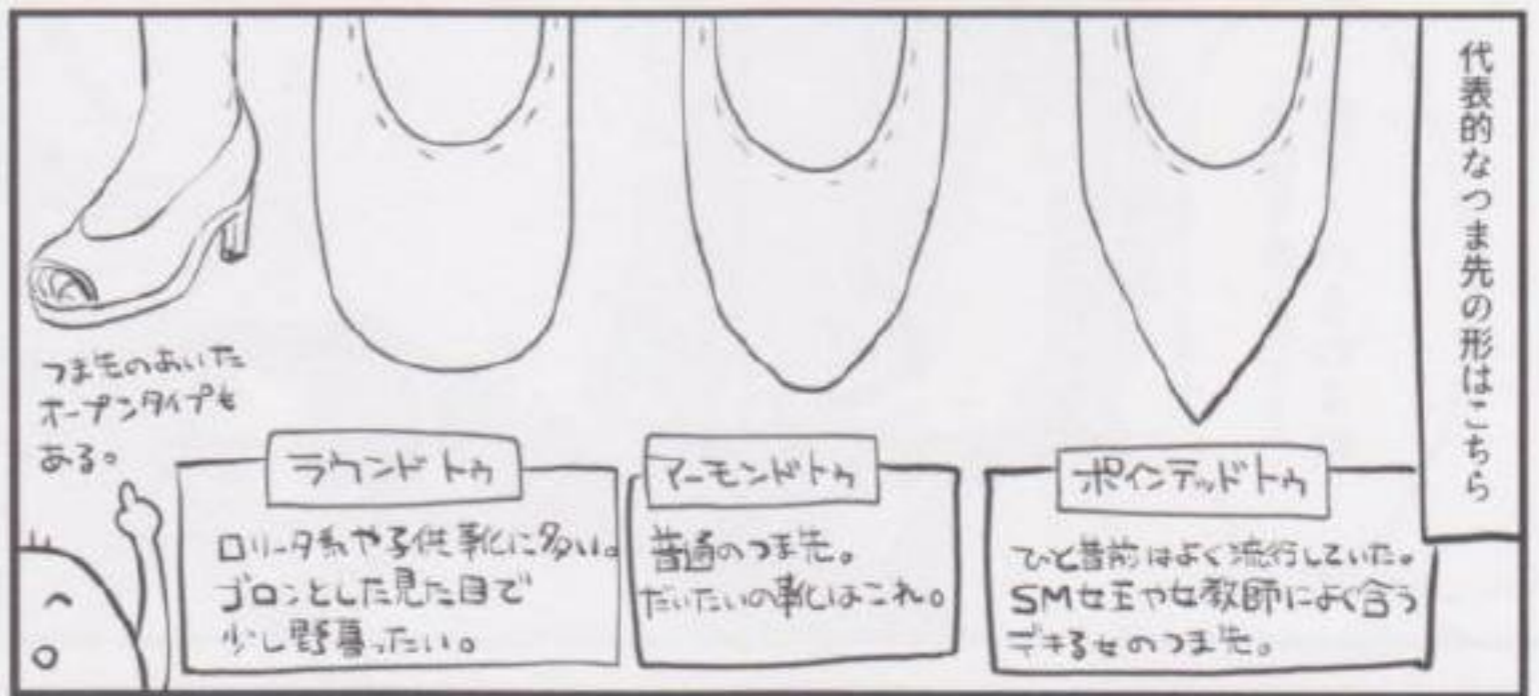 代表的なつま先の形はこちら
ポインテッドトゥ
ひと昔前はよく流行していた。
SM女王や女教師によく合う
デキる女のつま先。
アーモンドトゥ
普通のつま先。
だいたいの靴はこれ。
ラウンドトゥ
ロリータ系や子供靴に多い。
ゴロンとした見た目で
少し野暮ったい。
つま先のあいた
オープンタイプも
ある。